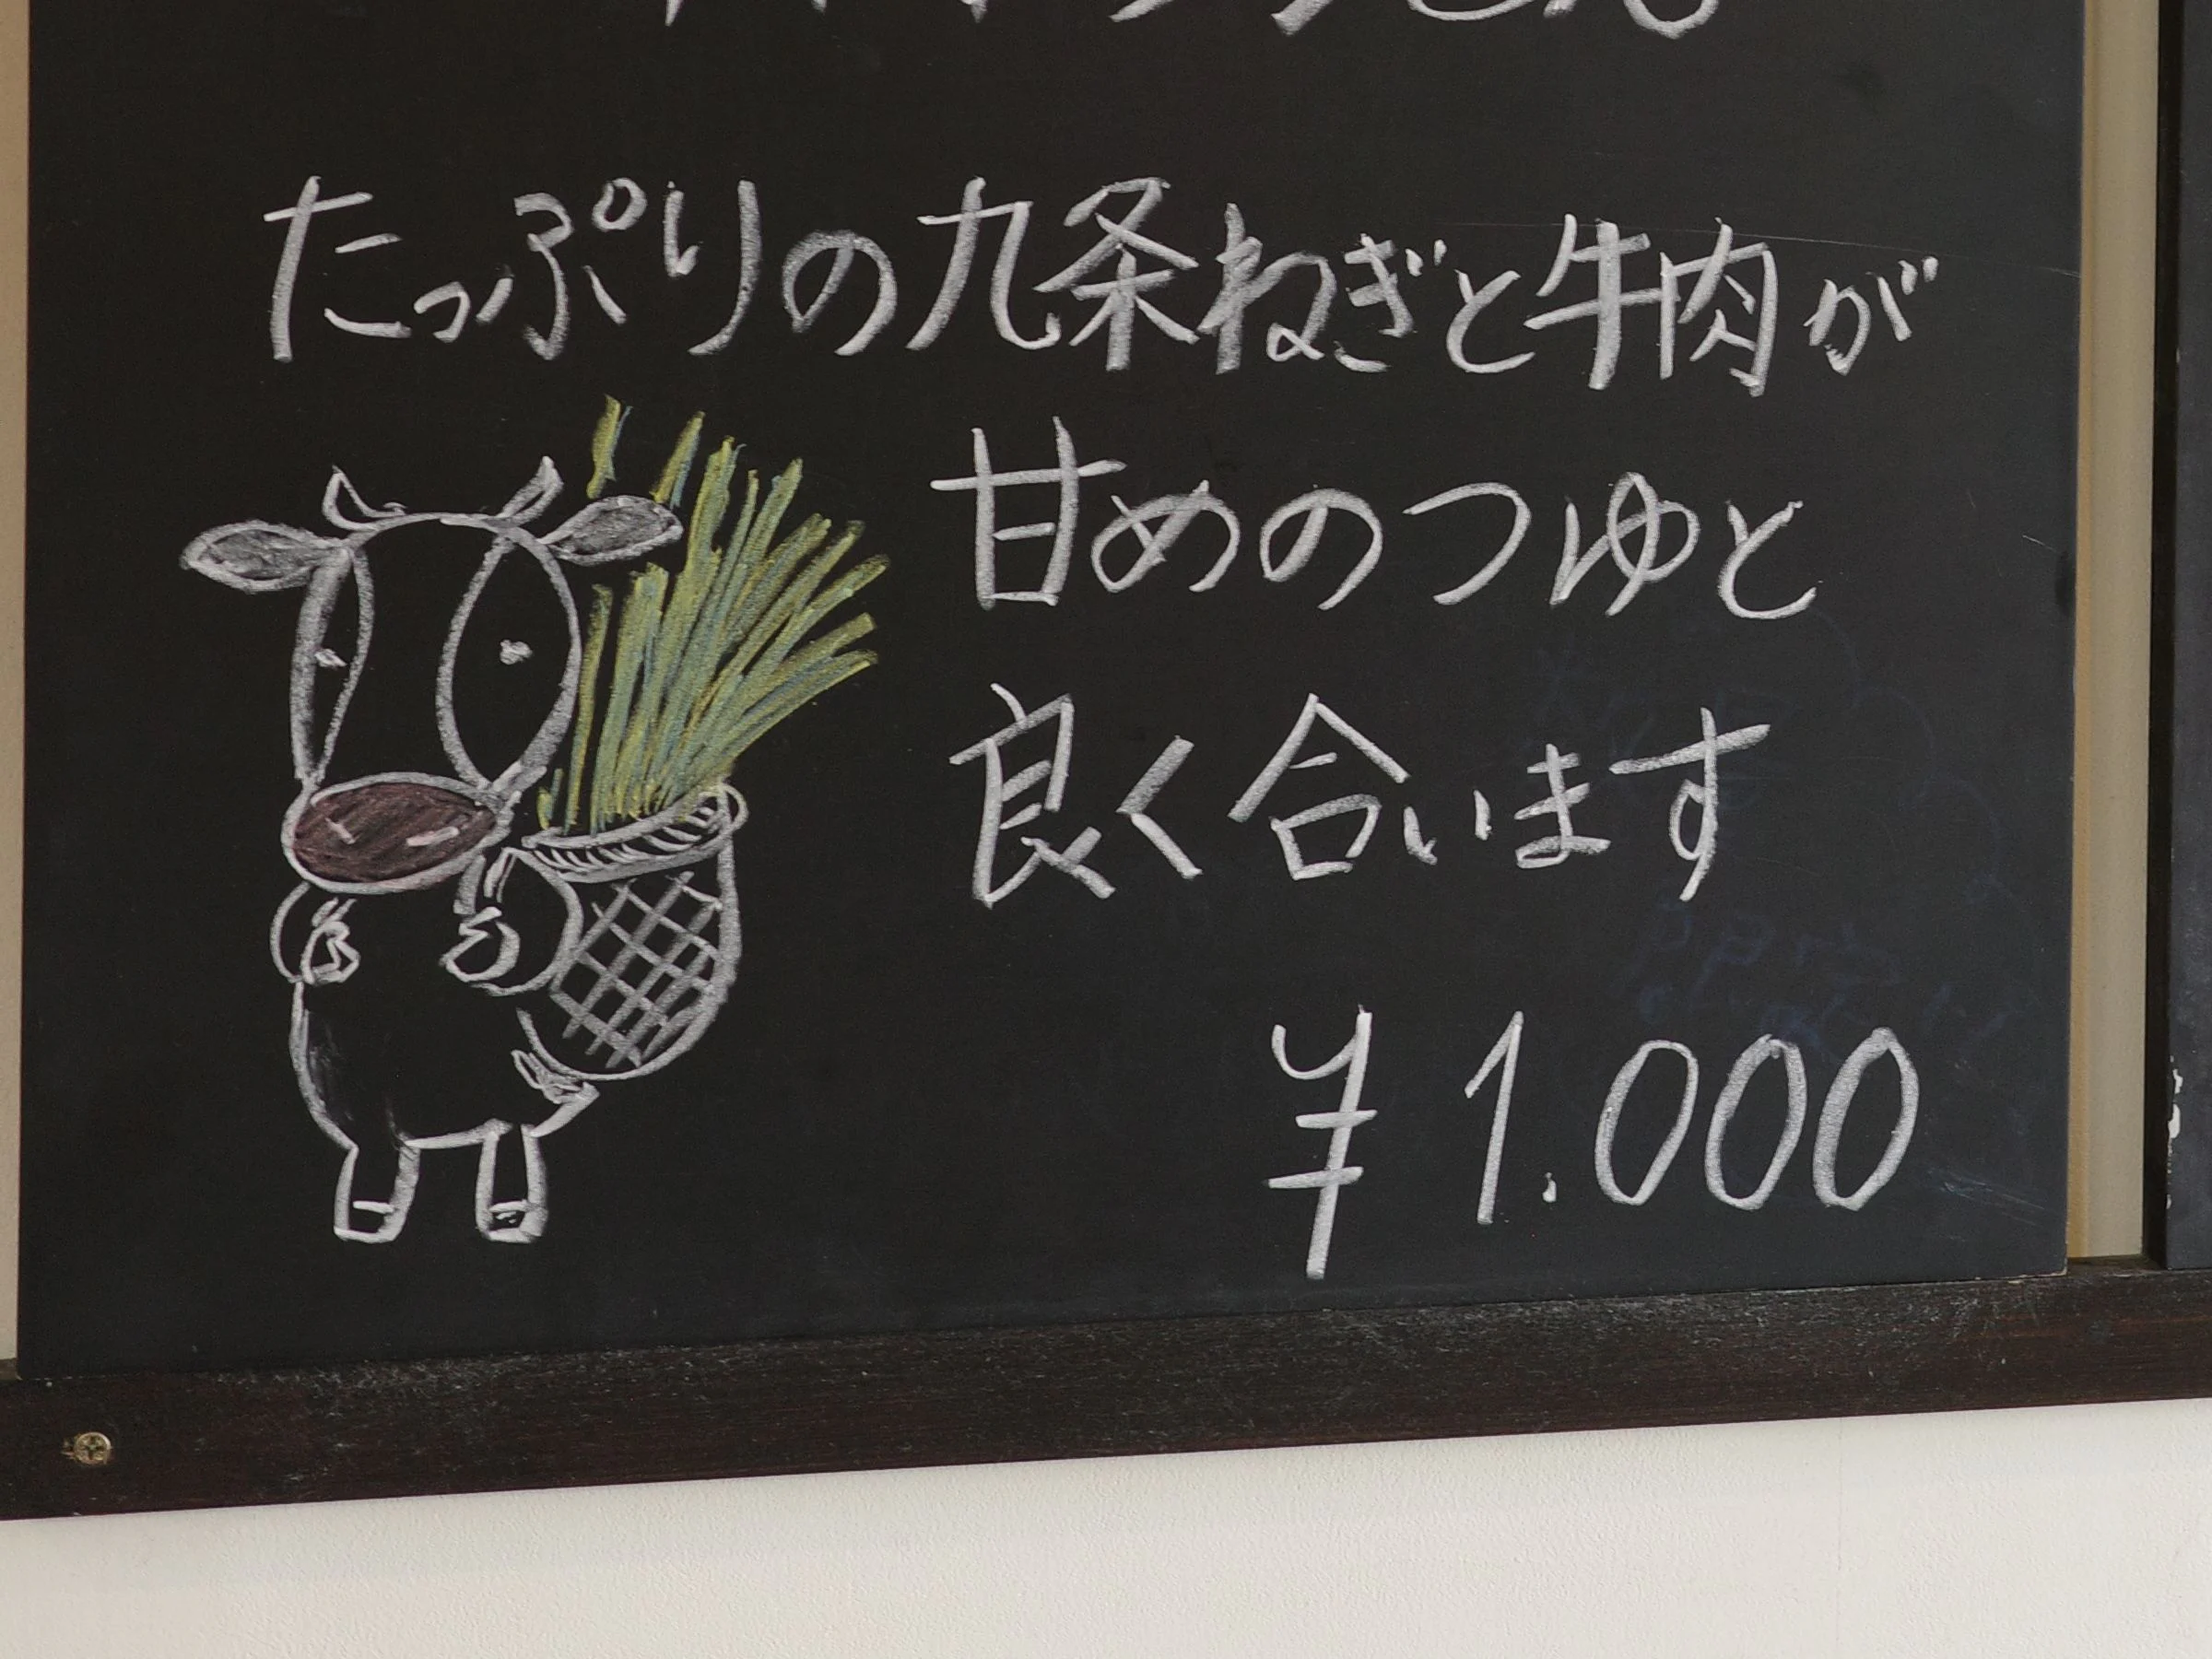 たっぷりの九条ねぎと牛肉が
甘めのつゆと
良く合います
¥1.000